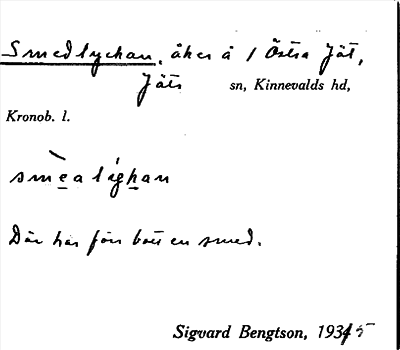 Smedlyckan, åker å 1 Östra Jät,
Jäts sn, Kinnevalds hd,
Kronob. l.
smèalýghan
Där har förr bott en smed.
Sigvard Bengtson, 1935